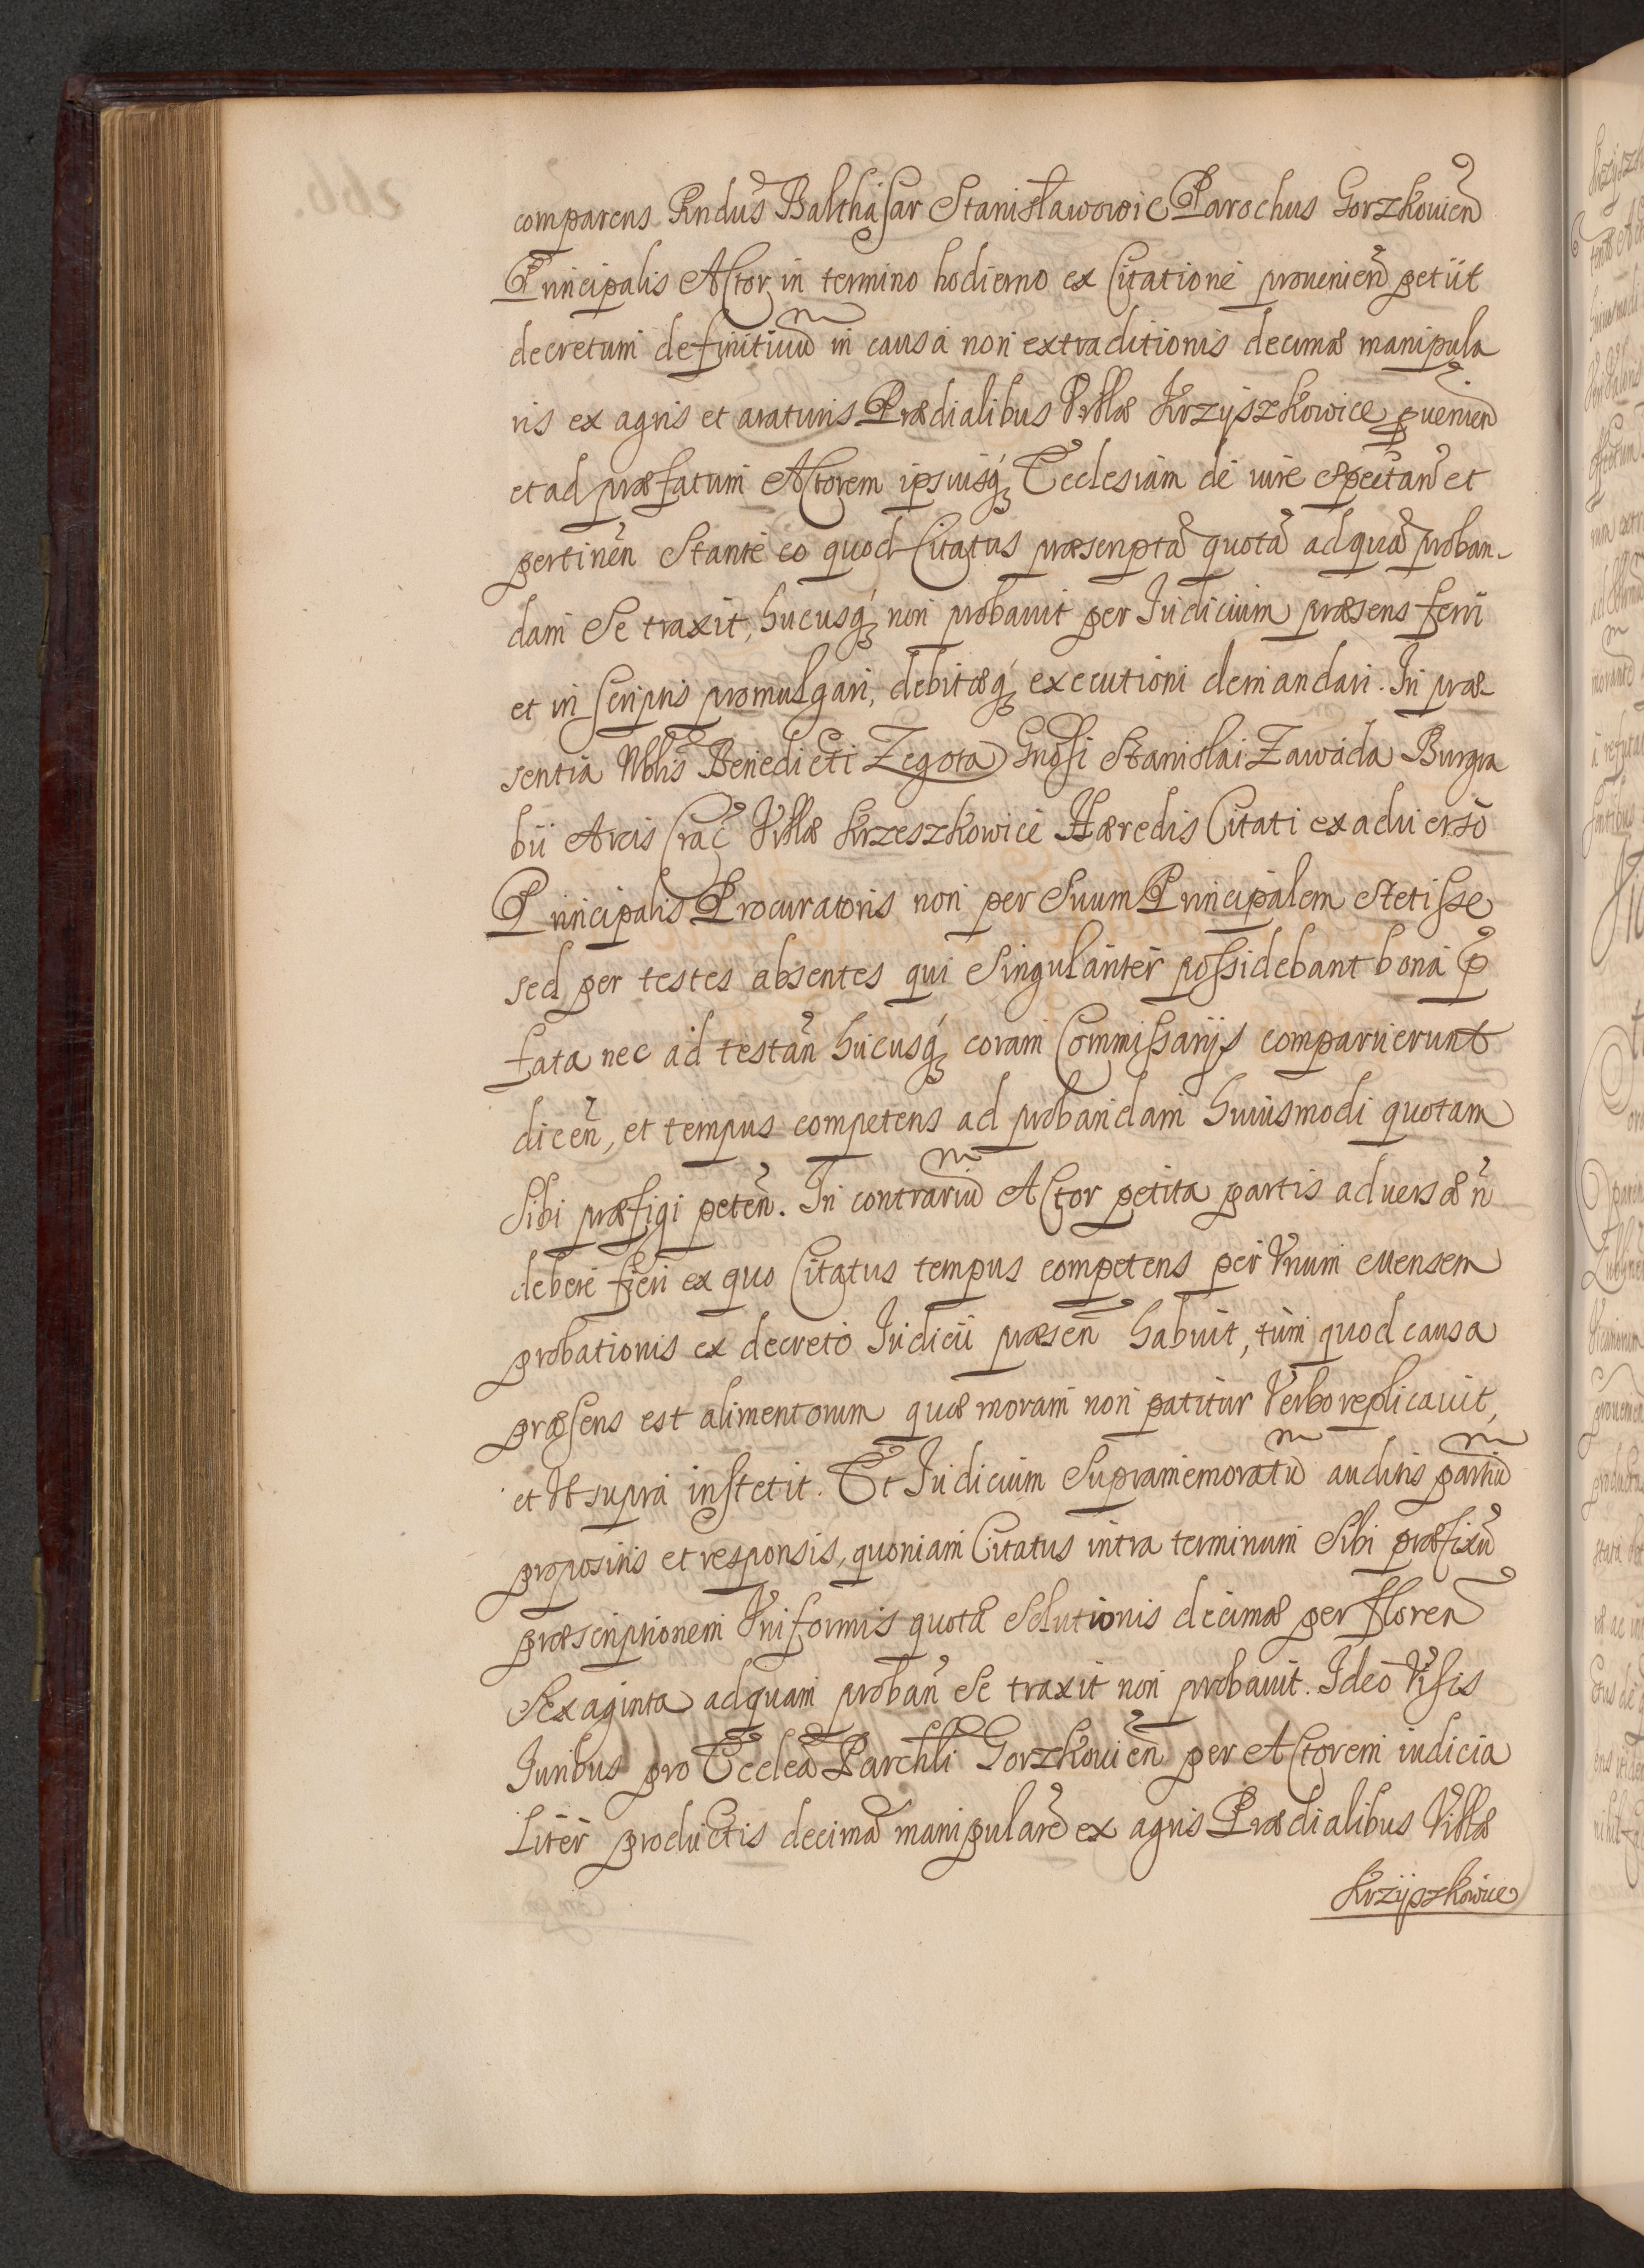 comparens Rndus Balthasar Stanisławowic Parochus Gorzkouien̄
Principalis Actor in termino hodierno ex Citatione prouenien̄ petiit
decretum definitiuū in causa non extraditionis decimæ manipula
ris ex agris et araturis Prædialibus Villæ Krzyszkowice ꝓuenien̄
et ad præfatum Actorem ipsiusq́ʒ Ecclesiam de iure spectan̄ et
pertinen̄ Stante eo quod Citatus præscriptā quotā ad quā proban-
dam Se traxit, hucusq́ʒ non probauit per Iudicium præsens ferri
et in scriptis promulgari, debitæq́ʒ executioni demandari. In præ-
sentia Nblis Benedicti Zegota Gnosi Stanislai Zawada Burgra
bii Arcis Crac̄ Villæ Krzeszkowice Hæredis Citati ex aduerso
Principalis Procuratoris non per Suum Principalem Stetisse
sed per testes absentes qui Singulariter possidebant bona p̄
fata nec ad testan̄ hucusq́ʒ coram Commissarijs comparuerunt
dicen̄, et tempus competens ad probandam huiusmodi quotam
Sibi præfigi peten̄. In contrariū Actor petita partis aduersæ n̄
debere fieri ex quo Citatus tempus competens per Vnum Mensem
probationis ex decreto Iudicii præsen̄ habuit, tum quod causa
præsens est alimentorum quæ moram non patitur Verbo replicauit,
et Vt supra institit. Et Iudicium Supramemoratū auditis partiū
propositis et responsis, quoniam Citatus intra terminum Sibi præfixū
præscriptionem Vniformis quotæ Solutionis decimæ per floren̄
Sexaginta ad quam proban̄ Se traxit non probauit. Ideo Visis
Iuribus pro Ecclea Parchli Gorzkouien̄ per Actorem iudicia
liter productis decimā manipularē ex agris Prædialibus Villæ
Krzyszkowice